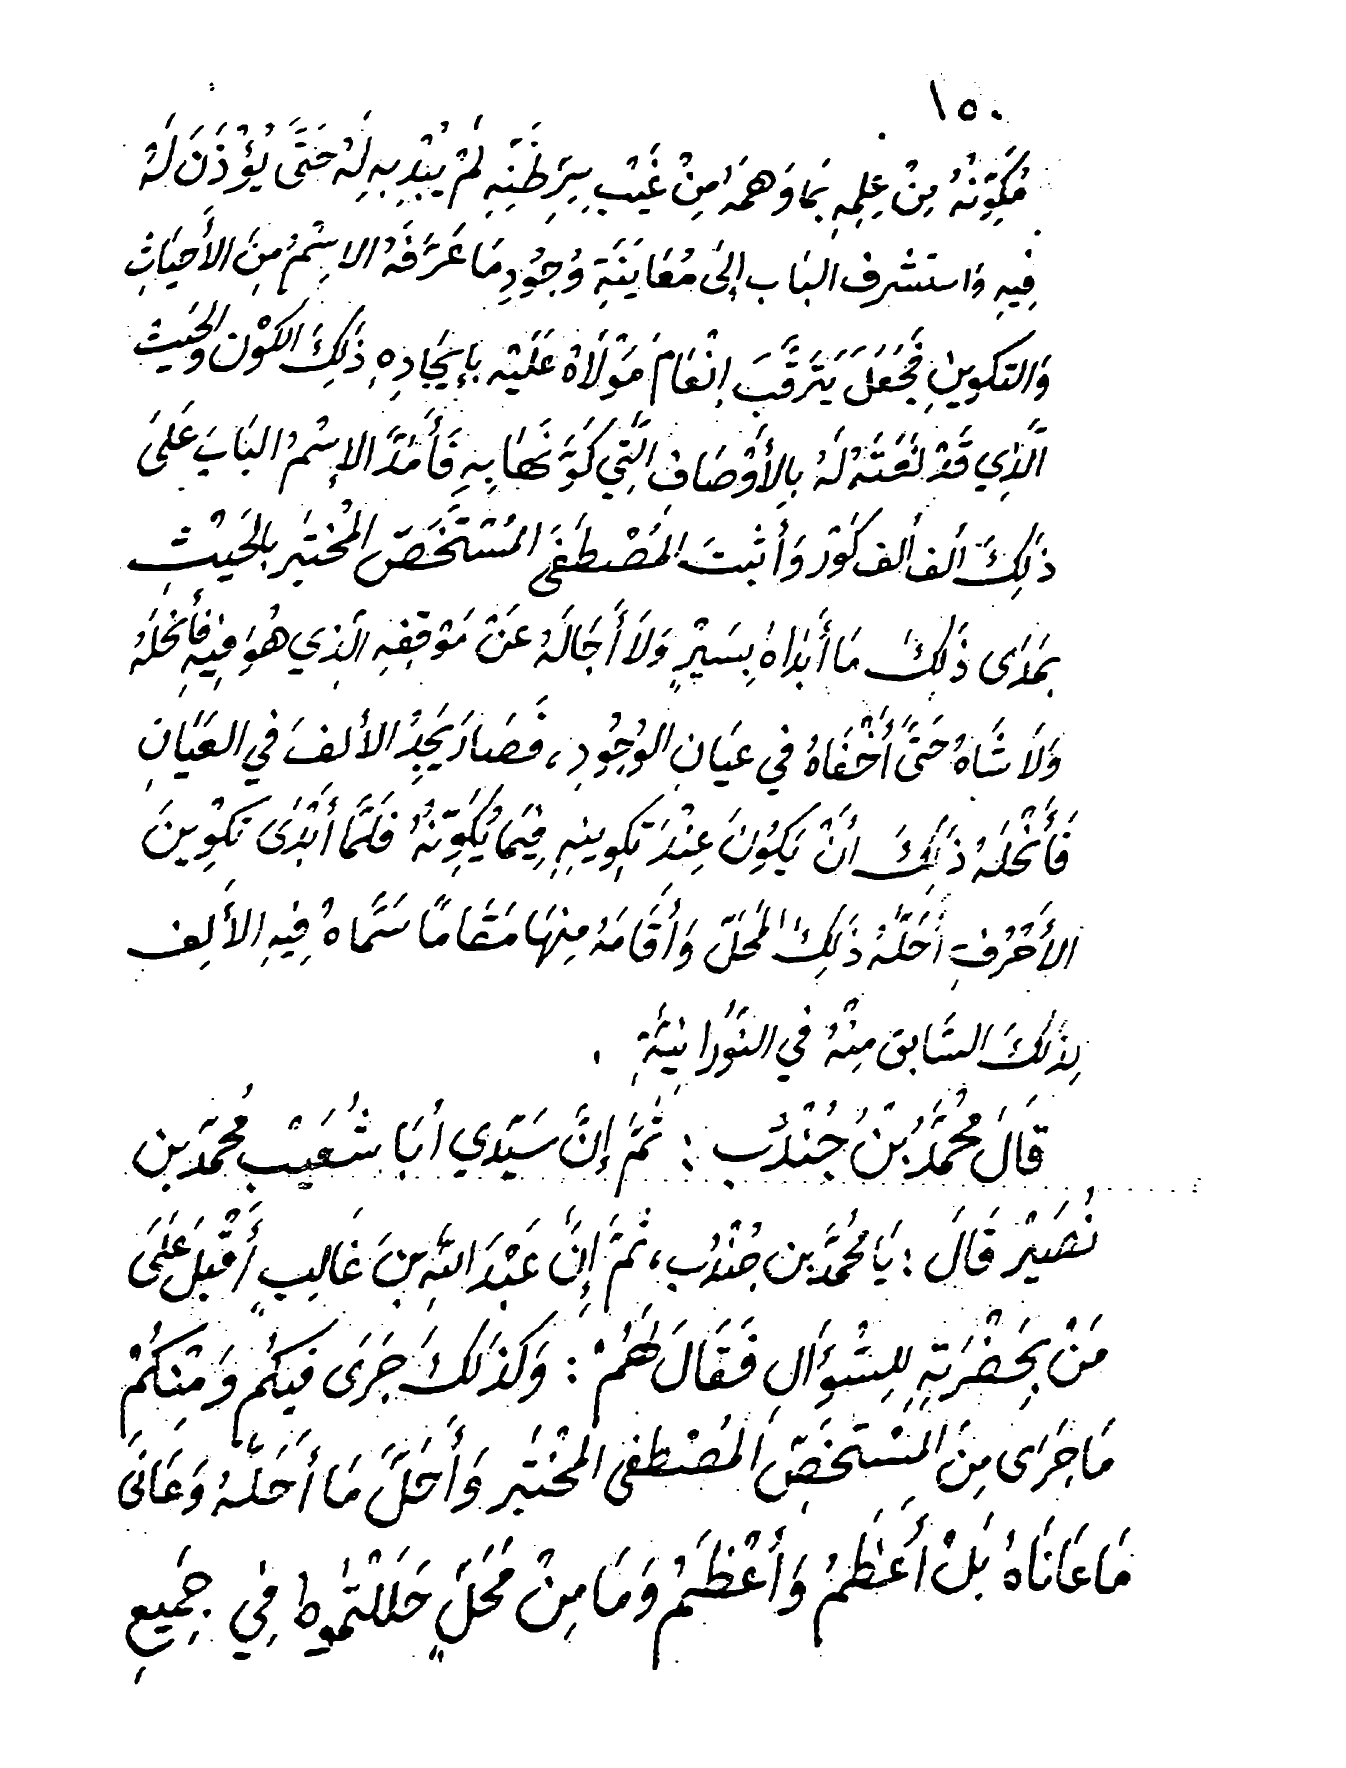 ١٥٠
مُكَوِّنُهُ مِنْ عِلِمِهِ بَمَا وَهَمَهُ مِنْ غَيْبِ سِرِّ ظَنِّهِ لَمْ يُبْدِ بِهِ لَهُ حَتَّى يُؤْذَنَ لَهُ
فِيهِ وَاستَشْرف البَاب إِلَى مُعَايَنَةِ وُجُودِ مَا عَرَّفَهُ الاسْمُ مِنَ الأَحيَاثِ
وَالتكوينِ فَجَعَلَ يَتَرَقَّبَ إنْعَامَ مَوْلَاهُ عَلَيْه بإِيجَادِهِ ذَلِكَ الكَوْن والحَيث
الَّذِي قَدْ نَعَتَهُ لَهُ بِالأَوْصَاف الَّتِي كَوَّنَهَا بِهِ فَأَمَدَّ الإسْمُ البَابَ عَلىَ
ذَلِكَ الف ألف كَوْر وَأثبتَ المَصْطَفَى المُسْتَخَصّ المُختبَر بالحَيْثِ
بمَدَى ذَلِكَ مَا أَبدَاهُ بِسَيْرٍ وَلاَ أَجَالَهُ عَنْ مَوْقفِهِ الَذِي هُوَ فِيْهِ فأَنحَلَهُ
وَلَا شَاهُ حَتَّى أَخْفَاهُ في عيَانِ الوُجُودِ ، فَصَارَ يَجِدُ الألفَ في العَيَانِ
فَأَنْحَلَهُ ذَلِكَ انْ يَكُونَ عِنْدَ تَكوِينِهِ فِيْمَا يُكَوِّنُهُ فَلَمَّا أَبْدَى تَكوِينَ
الأَحْرُفِ أَحَلَّهُ ذَلِكَ المَحَلّ وَأَقَامَهُ مِنهَا مَقَامًا سَمَّاهُ فِيهِ الأَلِف
لِذَلكَ السَّابق مِنْهُ في النَّوُرَانِيَّةِ .
قَالَ مُحَمَّدُ بْنُ جُنْدُب : ثمَّ إِنَّ سَيّدي أبَا شُعَيْب مُحمَّد بن
نُصَيْر قَالَ : يَا مُحمَّد بن جنْدُب ، ثمَّ إِنَّ عَبْدَ اللّهِ بنَ غَالِبٍ أَقْبَلَ عَلَى
مَنْ بِحَضْرَتِهِ لِلِسُّؤَالِ فَقَالَ لَهُمْ : وَكذَلكَ جَرَى فيكُم وَمنكُمْ
مَا جَرَى مِنَ المسْتخَصِّ المَصْطفى المخْتَبَر وَأَحَلَّ مَا أَحَلَّهُ وَعَانَى
مَا عَانَاهُ بَلْ أَعَظمُ وَأَعْظَمُ وَمَا مِنْ مَحَلٍّ حَلَلْتمُوهُ فِي جَمِيعِ